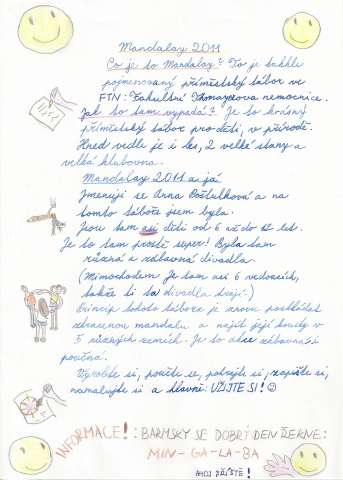 Mandalay 2011
Co je to Mandalay? To je takhle
pojmenovaný příměstský tábor ve
FTN: Fakultní Thomayerova nemocnice.
Jak to tam vypadá? Je to krásný
příměstský tábor pro děti, v přírodě.
Hned vedle je i les, 2 velké stany a
velká klubovna.
Mandalay 2011 a já
Jmenuji se Anna a na
tomto táboře jsem byla.
Jsou tam asi děti od 6 až do 12 let.
Je to tam prostě super! Byla tam
různá a zábavná divadla.
(Mimochodem je tam asi 6 vedoucích,
takže si ta divadla hrají.)
Princip tohoto tábora je znovu poskládat
ztracenou mandalu a najít její kousky v
5 různých zemích. Je to akce zábavná i
poučná.
Vyrobíte si, poučíte se, pohrajete si, zapíšete si,
namalujete si a hlavně: UŽIJTE SI! ☺
INFORMACE! : BARMSKY SE DOBRÝ DEN ŘEKNE:
MIN-GA-LA-BA
AHOJ PŘÍŠTĚ!